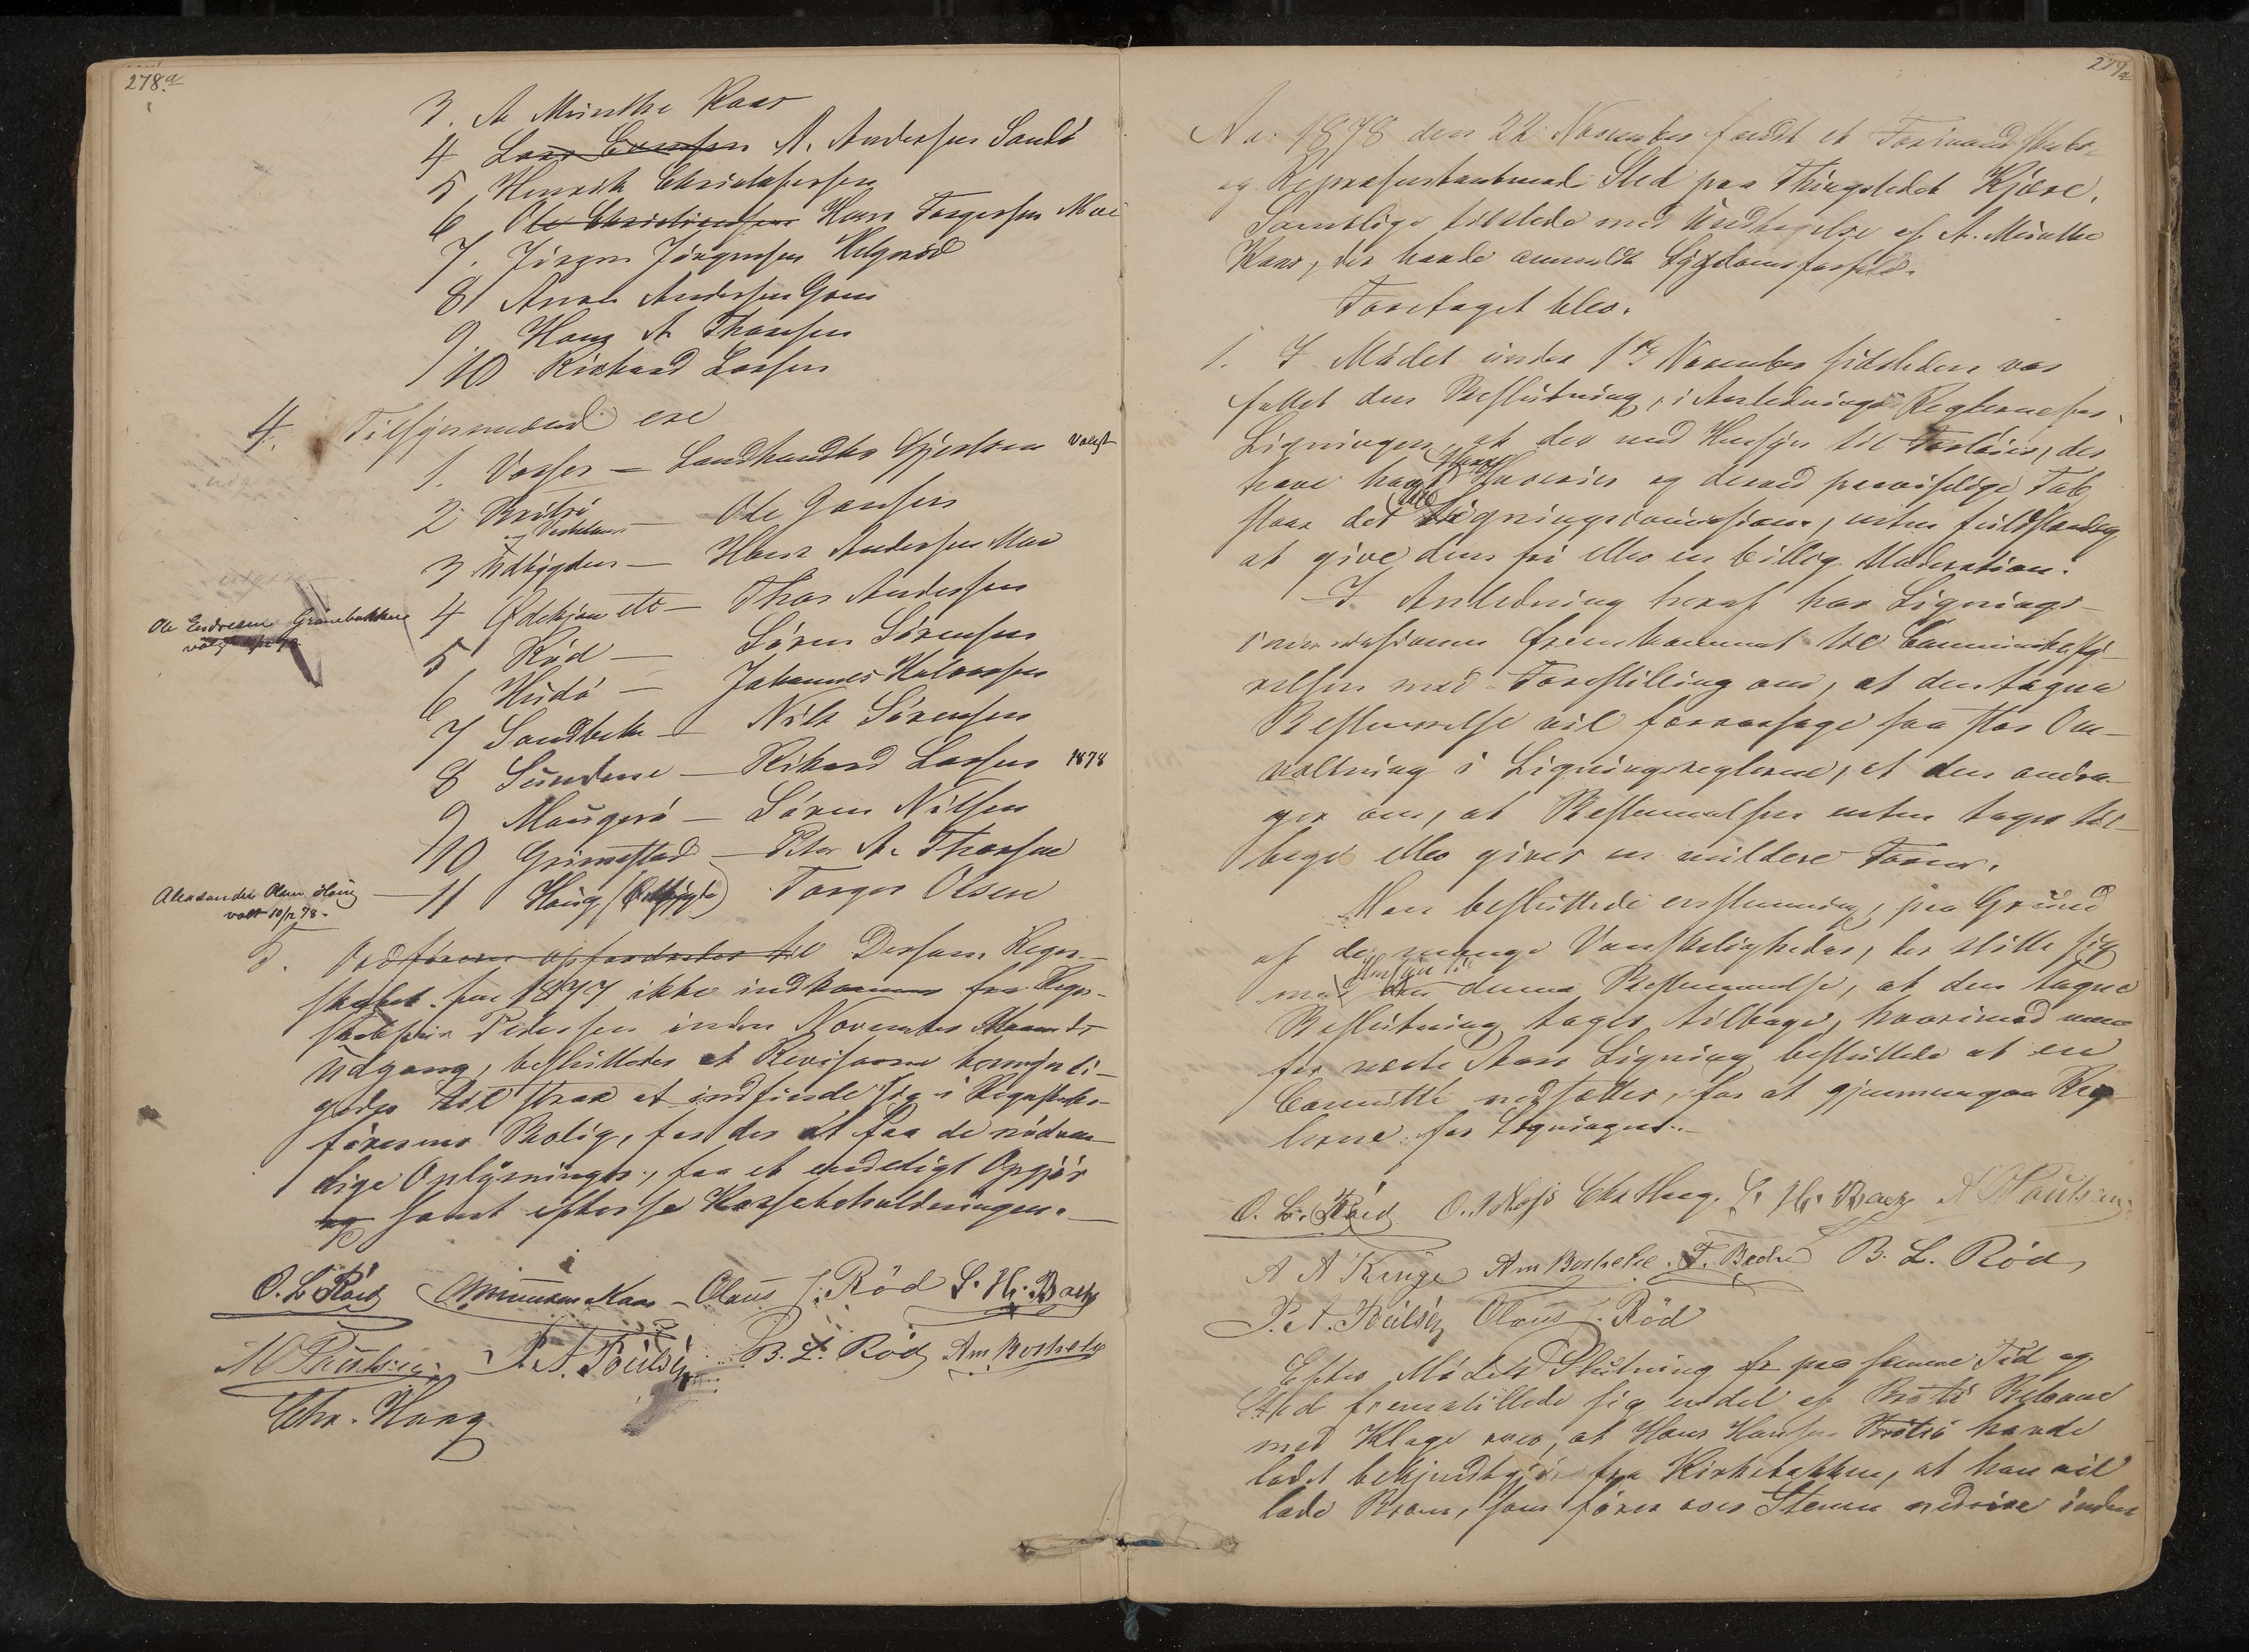 278.a
3. A Münthe Kaas
4 Lars Larssen A. Andersen Sandö
5 Henrik Christofersen
6 Ole Christiansen Hans Torgersen Moe
7. Jörgen Jörgensen Helgeröd
8 Anders Andersen
9. Hans A Thoresen
10 Rickard Larsen
4. Tilsynsmænd ere
1. Vasser — Landhandler Gjertsen valgt
2 Brötsö — Ole Hansen
3 Udbygden — Hans Andersen Moe
Ole Endresen Grönebakken
valgt
4 Ødekjær etc — Thor Andersen
5 Röd — Sören Sörensen
6 Hudö — Johannes Halvorsen
7 Sandbek — Nils Sörensen
8 Sundene — Rikard Larsen 1878
9 Maugerö — Sören Nilsen
10 Grimestad — Peter A. Thorsen
Alexander Olsen Haug
valt 10/12 78.
11 Haug Torger Olsen
5. Ordföreren opfordrades til Dersom Regn-
skabet for 1877 ikke indkommer fra Regn-
skabsfører Pedersen inden November Maaneds
Udgang, besluttedes at Revisorene bemyndi-
gedes til strax at indfinde sig i Regnskabs-
förerens Bolig, for der at faa de nödven-
dige Oplysninger, faa et endeligt Opgjör
og samt efterse Kassebeholdningen.
O. L. Röed A Münthe Kaas Olaus J. Röd S. H. Bache
N Poulsen P. A. Poulsen B. L. Röd Am Borhele
Chr. Haug
279a
Aar 1878 den 22 November holdt et Formandskabs-
og Repræsentantmøde Sted paa Thingstedet Kjære.
Samtlige tilstede med Undtagelse af A. Münthe
Kaas, der havde anmeldt Sygdomsforfald.
Foretaget blev.
1. I Mödet under 1ste November sidstleden var
fattet den Beslutning, i Anledning Reglerne for
Ligningen, at der med Hensyn til Fartöier, der
have havt Havarier og derved beviselige Tab
staar det Ligningscomissionen, enten fuldstændig
at give dem fri eller en billig Moderation.
I Anledning heraf har Lignings-
comissionen fremkommet til Communebesty-
relsen med Forestilling om, at den tagne
Bestemmelse vil foraarsage saa stor Om-
væltning i Ligningsreglerne, at den andra-
ger om, at Bestemmelsen enten tages til-
bage eller gives en mildere Form.
Man besluttede enstemmig, paa Grund
af de mange Vanskeligheder, der stille sig
med Hensyn til denne Bestemmelse, at den tagne
Beslutning tages tilbage, hvorimod man
for næste Aars Ligning besluttede at en
Comitté nedsættes, for at gjennemgaa Reg-
lerne for Ligningen.
O. L. Röed O. Chr Haug. S. H. Bache N Poulsen
A A Kinge Am Borhele. F. Bache B. L. Röd
P. A. Poulsen Olaus J. Röd
Efter Mödets Slutning paa samme Tid og
Sted fremstillede sig endel af Brötsö Beboere
med Klage over, at Hans Hansen Brötsö havde
ladet bekjendtgjöre fra Kirkebakken, at han vil
lade Broen, som förer over Stenen nedrive inden